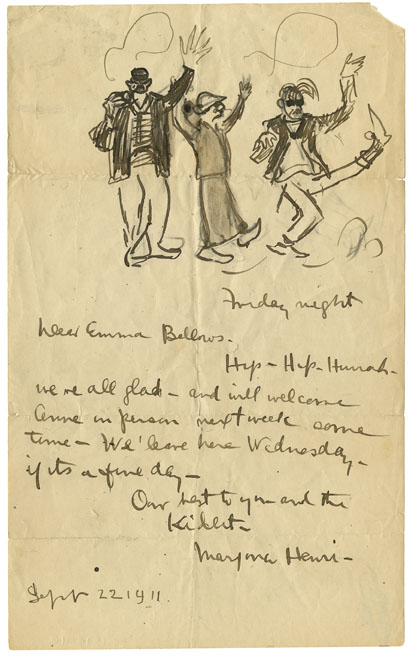 Friday night
Dear Emma Bellows -
Hip - Hip - Hurrah -
we're all glad - and will welcome
Anne in person next week some
time - We'leave here Wednesday -
if its a fine day -
Our best to you and the
Kidlet -
Marjorie Henri -
Sept 22 1911.